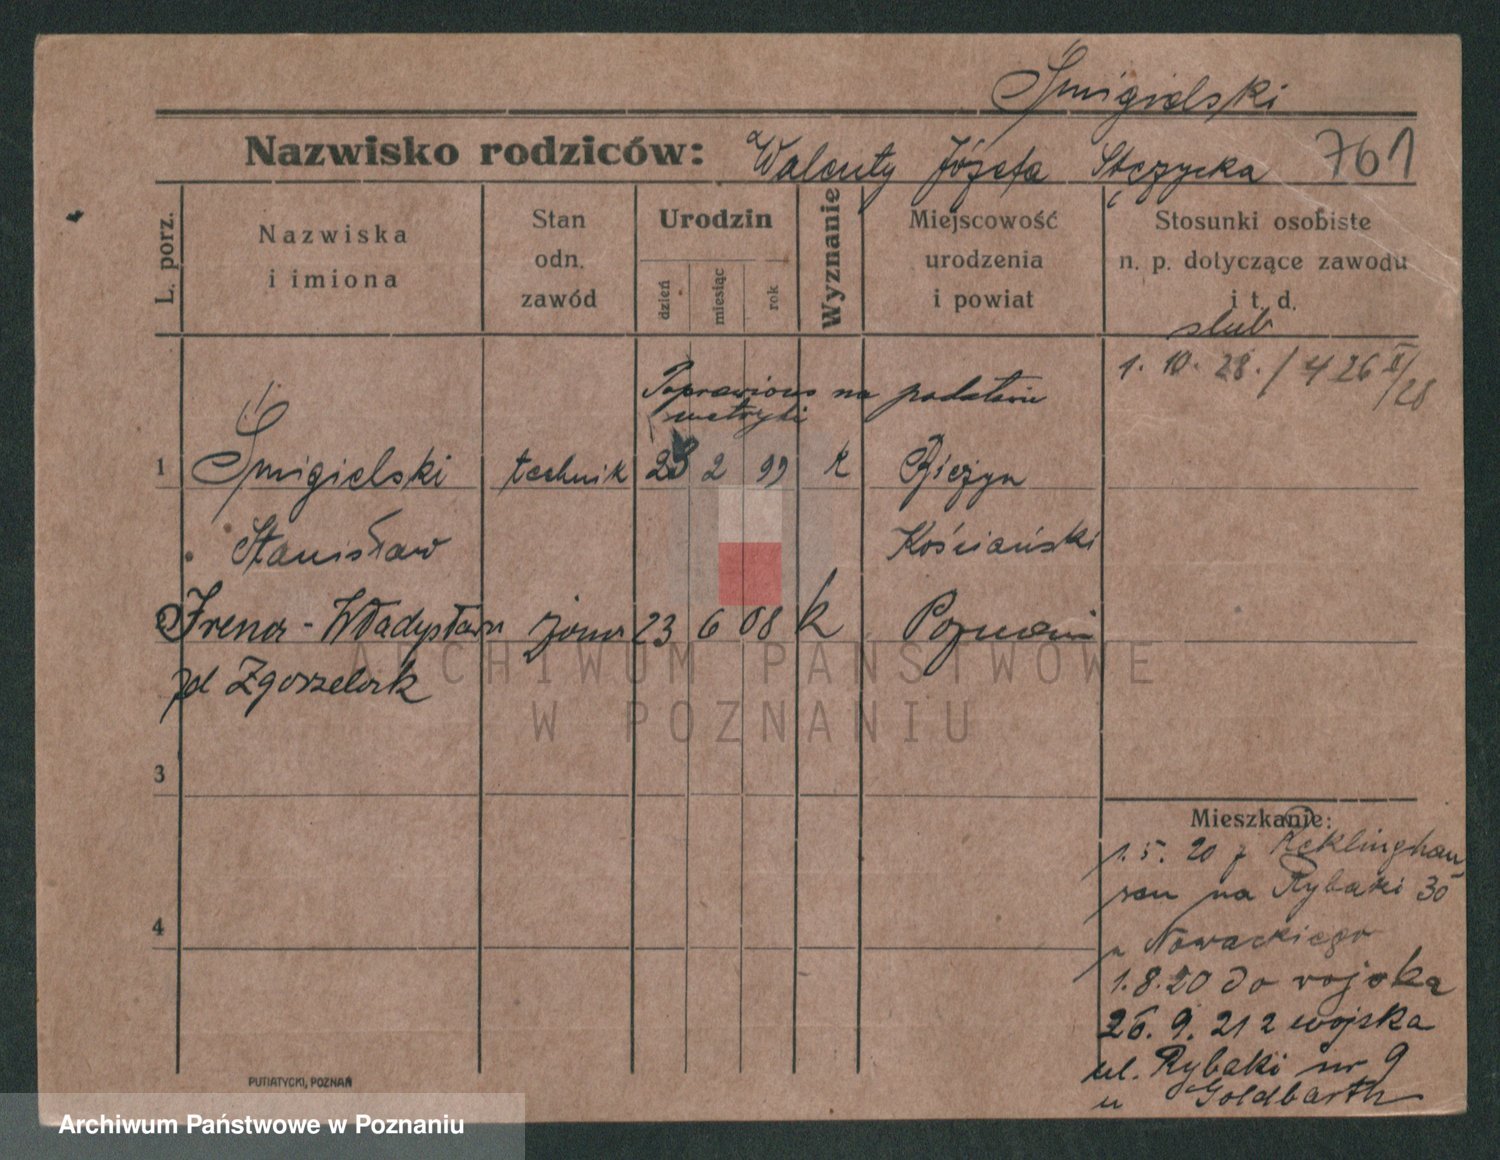 Śmigielski
Nazwisko rodziców: Walenty Józefa Stęzycka 761
L. porz.
Nazwiska
i imiona
Stan
odn.
zawód
Urodzin
dzień
miesiąc
rok
Wyznanie
Miejscowość
urodzenia
i powiat
Stosunki osobiste
n. p. dotyczące zawodu
i t. d.
slub
1. 10. 28. / 426 II/28
Poprawiono na podstawie
metryki
1 Śmigielski technik 2 2 99 k Bieżyn
Stanisław Kościański
Irena - Władysława żona 23 6 08 k Poznań
zd Zgorzelak
3
4
Mieszkanie:
1. 5. 20 z Reklinghau
sen na Rybaki 30
u Nowackiego
1. 8. 20 do wojska
26. 9. 21 z wojska
ul. Rybaki nr 9
u Goldbarth
PUTIATYCKI, POZNAŃ
ARCHIWUM PAŃSTWOWE
W POZNANIU
Archiwum Państwowe w Poznaniu